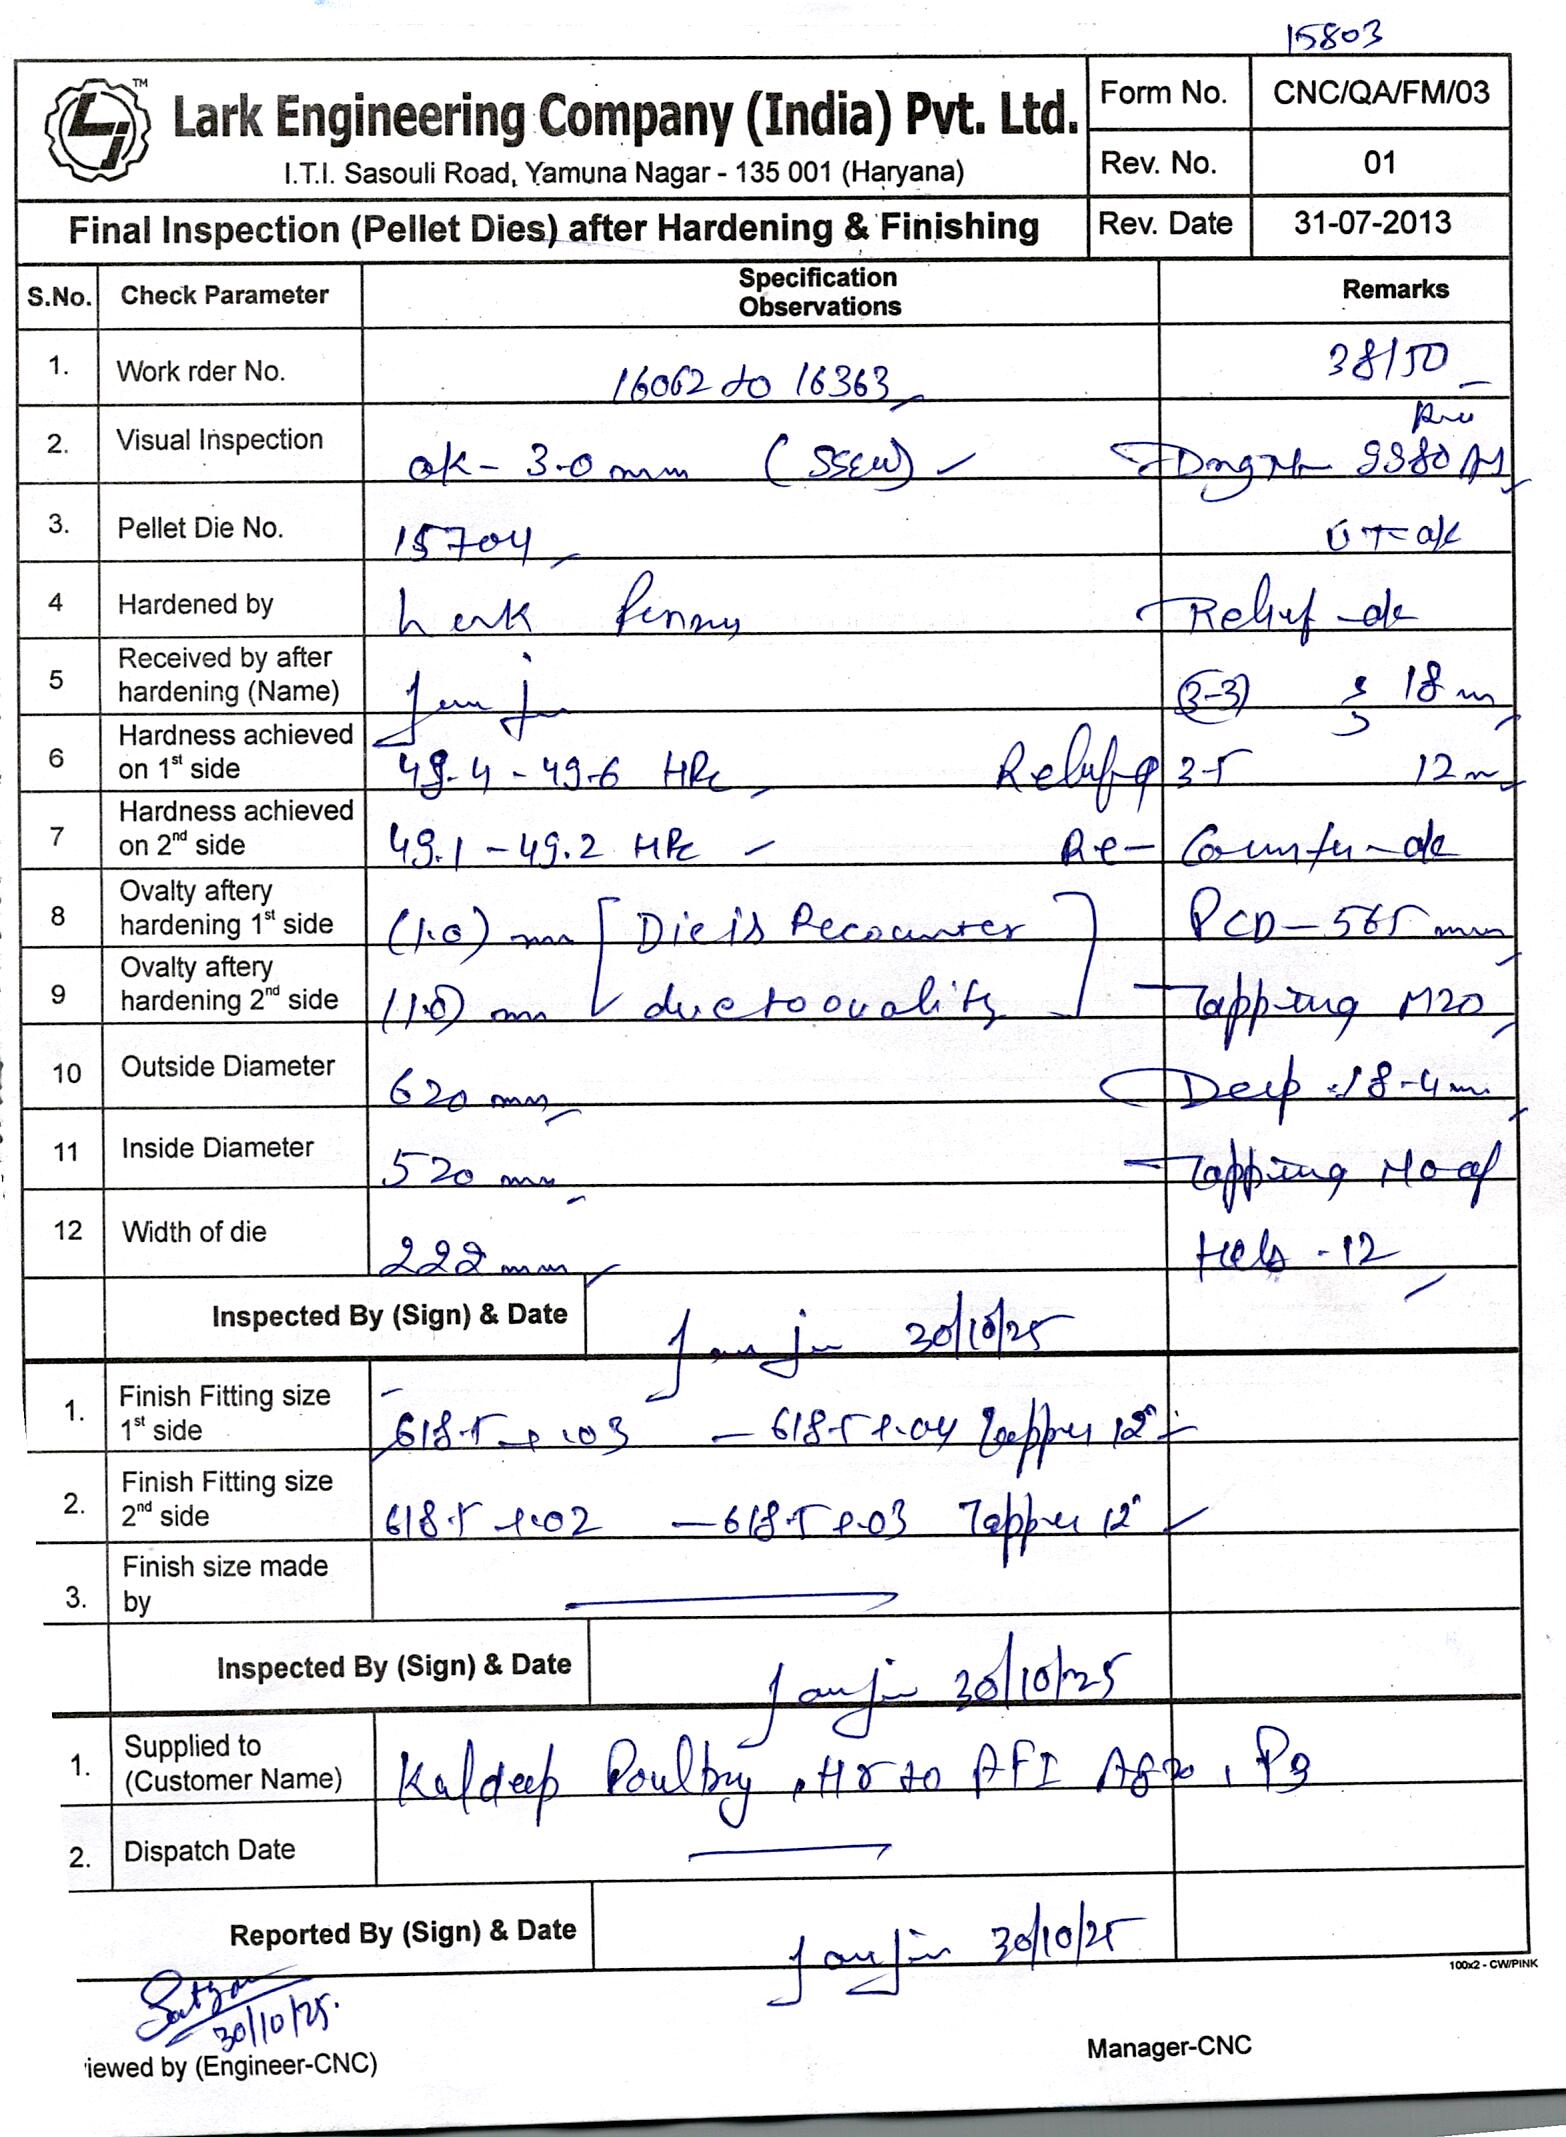 15803
TM
Lark Engineering Company (India) Pvt. Ltd.
I.T.I. Sasouli Road, Yamuna Nagar - 135 001 (Haryana)
Form No. CNC/QA/FM/03
Rev. No. 01
Final Inspection (Pellet Dies) after Hardening & Finishing
Rev. Date 31-07-2013
S.No. Check Parameter Specification Observations Remarks
1. Work rder No. 16062 to 16363 38/50
2. Visual Inspection ok - 3.0 mm (SSEW)
3. Pellet Die No. 15704 UT-ok
4 Hardened by Relief - ok
5 Received by after hardening (Name) (3-3) 18 m
6 Hardness achieved on 1st side 49.4 - 49.6 HRc 3-5 12 m
7 Hardness achieved on 2nd side 49.1 - 49.2 HRc Re - Counter - ok
8 Ovalty aftery hardening 1st side (1.0) mm [Die is Recounter PCD - 565 mm
9 Ovalty aftery hardening 2nd side (1.0) mm due to ovality] Tapping M20
10 Outside Diameter 620 mm Deep 18-4 m
11 Inside Diameter 520 mm Tapping
12 Width of die 222 mm - 12
Inspected By (Sign) & Date 30/10/25
1. Finish Fitting size 1st side 618.5 +.03 - 618.5 +.04 Tapper 12"
2. Finish Fitting size 2nd side 618.5 +.02 - 618.5 +.03 Tapper 12"
3. Finish size made by
Inspected By (Sign) & Date 30/10/25
1. Supplied to (Customer Name) Kaldeep Poultry, Hr to AFI Agro, PB
2. Dispatch Date
Reported By (Sign) & Date 30/10/25
100x2 - CW/PINK
30/10/25.
iewed by (Engineer-CNC)
Manager-CNC